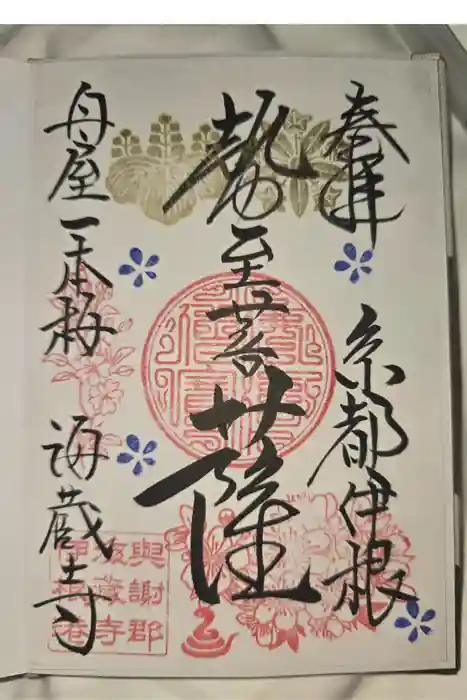 奉拝
京都伊根
勢至菩薩
舟屋一本桜
海蔵寺
與謝郡
海蔵寺
伊根港